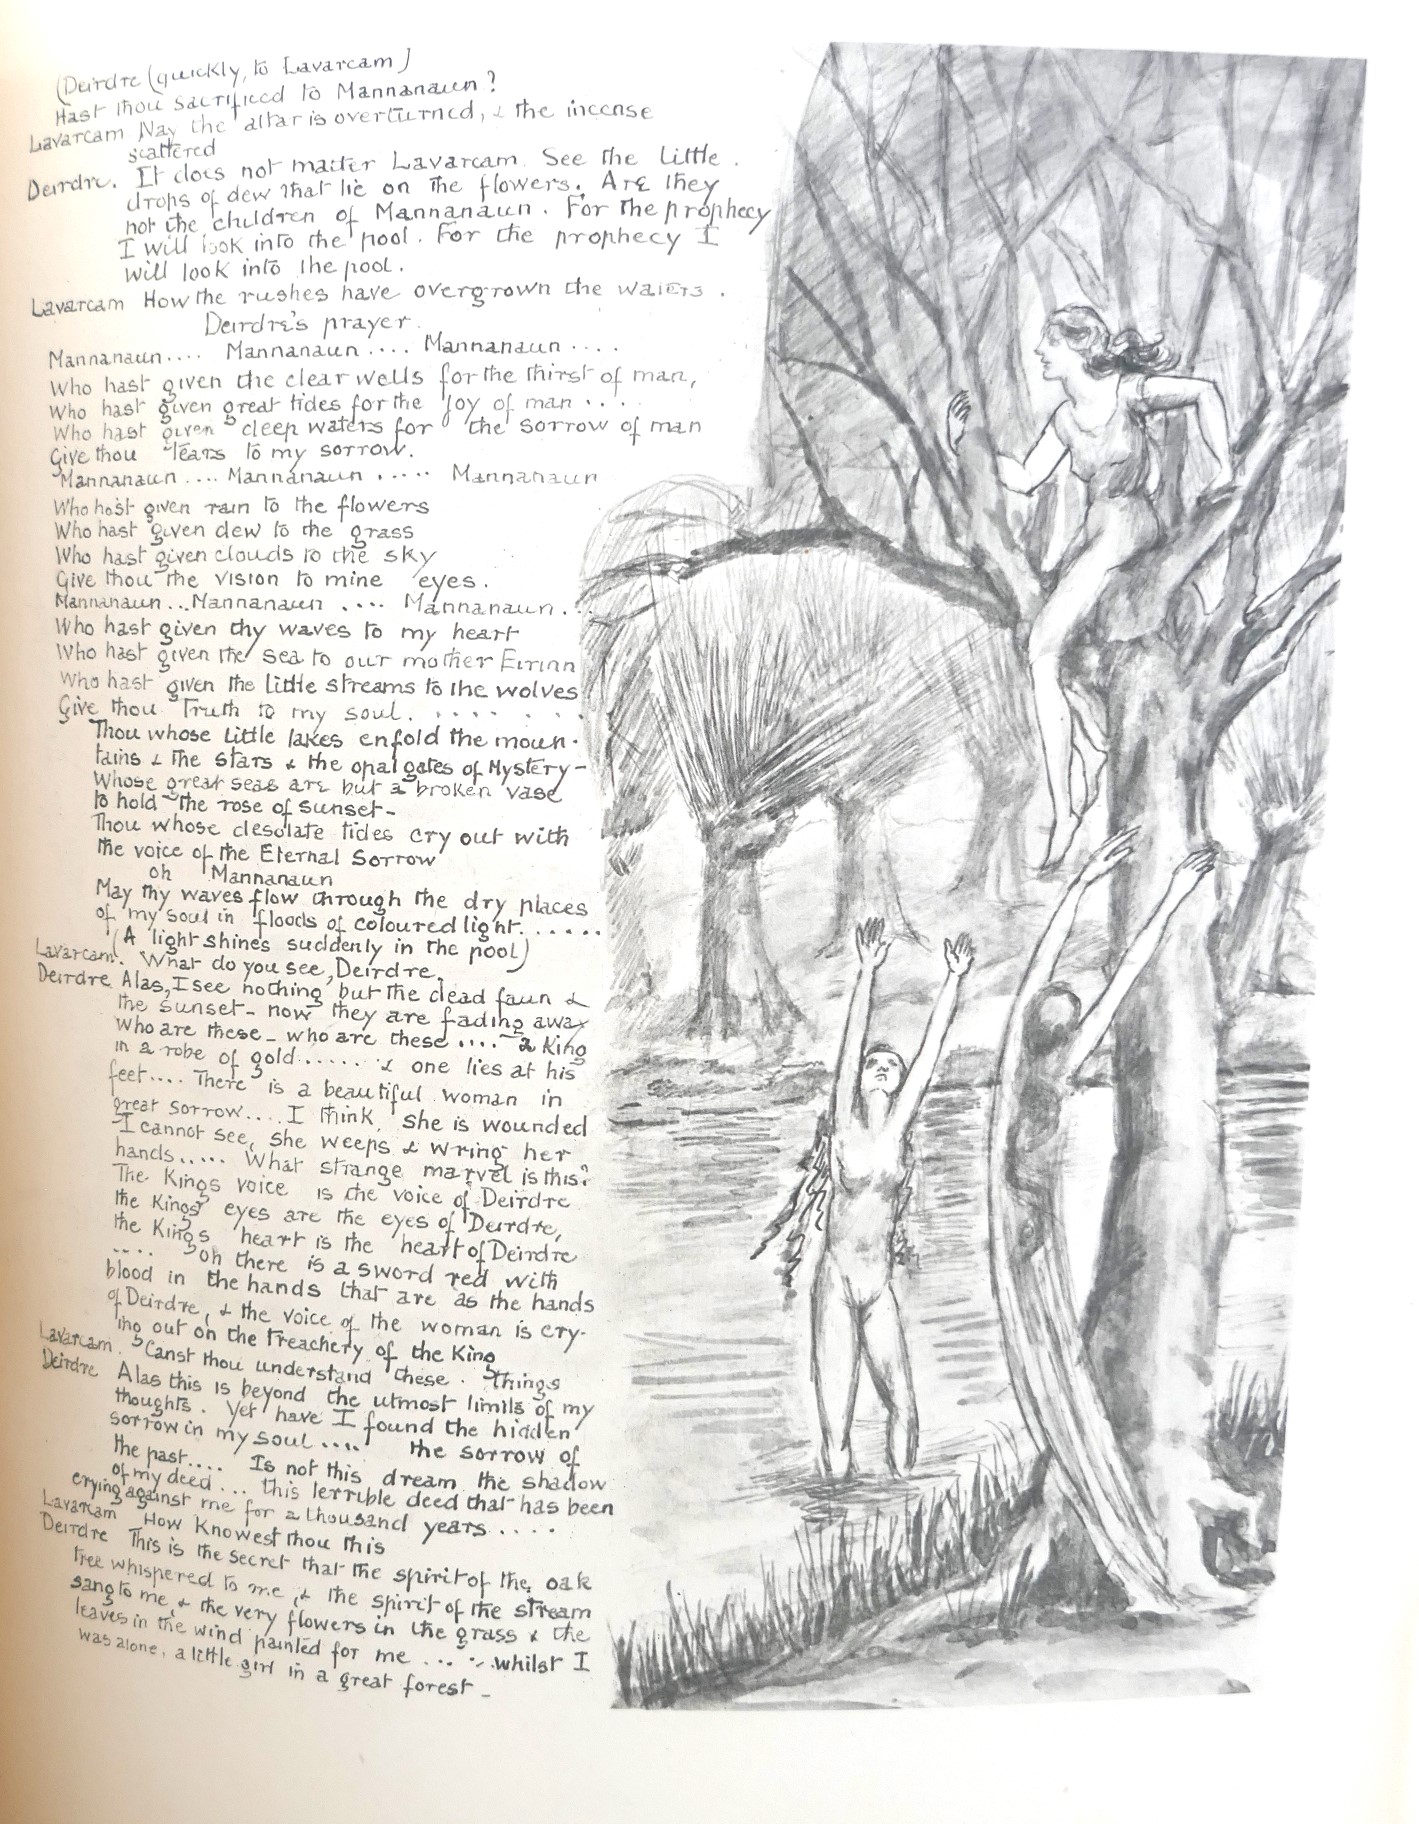 (Deirdre (quickly, to Lavarcam)
Hast thou sacrificed to Mannanaun?
Lavarcam Nay the altar is overturned, & the incense
scattered
Deirdre. It does not matter Lavarcam. See the little
drops of dew that lie on the flowers. Are they
not the children of Mannanaun. For the prophecy
I will look into the pool. For the prophecy I
will look into the pool.
Lavarcam How the rushes have overgrown the waters.
Deirdre's prayer.
Mannanaun.... Mannanaun.... Mannanaun....
Who hast given the clear wells for the thirst of man,
Who hast given great tides for the joy of man....
Who hast given deep waters for the sorrow of man
Give thou tears to my sorrow.
Mannanaun.... Mannanaun..... Mannanaun
Who hast given rain to the flowers
Who hast given dew to the grass
Who hast given clouds to the sky
Give thou the vision to mine eyes.
Mannanaun...Mannanaun .... Mannanaun...
Who hast given thy waves to my heart
Who hast given the sea to our mother Eirinn
Who hast given the little streams to the wolves
Give thou Truth to my soul. . . . . . .
Thou whose little lakes enfold the moun-
tains & the stars & the opal gates of Mystery-
Whose great seas are but a broken vase
to hold the rose of sunset-
Thou whose desolate tides cry out with
the voice of the Eternal Sorrow
oh Mannanaun
May thy waves flow through the dry places
of my soul in floods of coloured light......
(A light shines suddenly in the pool)
Lavarcam. What do you see, Deirdre.
Deirdre Alas, I see nothing but the dead faun &
the sunset- now they are fading away
Who are these_ who are these .... a King
in a robe of gold...... & one lies at his
feet.... There is a beautiful woman in
great sorrow.... I think, she is wounded
I cannot see, she weeps & wring her
hands..... What strange marvel is this?
The Kings voice is the voice of Deirdre
the Kings eyes are the eyes of Deirdre,
the Kings heart is the heart of Deirdre
.... oh there is a sword red with
blood in the hands that are as the hands
of Deirdre, & the voice of the woman is cry-
ing out on the Treachery of the King
Lavarcam. Canst thou understand these. Things
Deirdre Alas this is beyond the utmost limits of my
thoughts. Yet have I found the hidden
sorrow in my soul.... the sorrow of
the past.... Is not this dream the shadow
of my deed... this terrible deed that has been
crying against me for a thousand years....
Lavarcam How Knowest thou this
Deirdre This is the secret that the spirit of the oak
tree whispered to me, & the spirit of the stream
sang to me, & the very flowers in the grass & the
leaves in the wind painted for me .....whilst I
was alone, a little girl in a great forest_